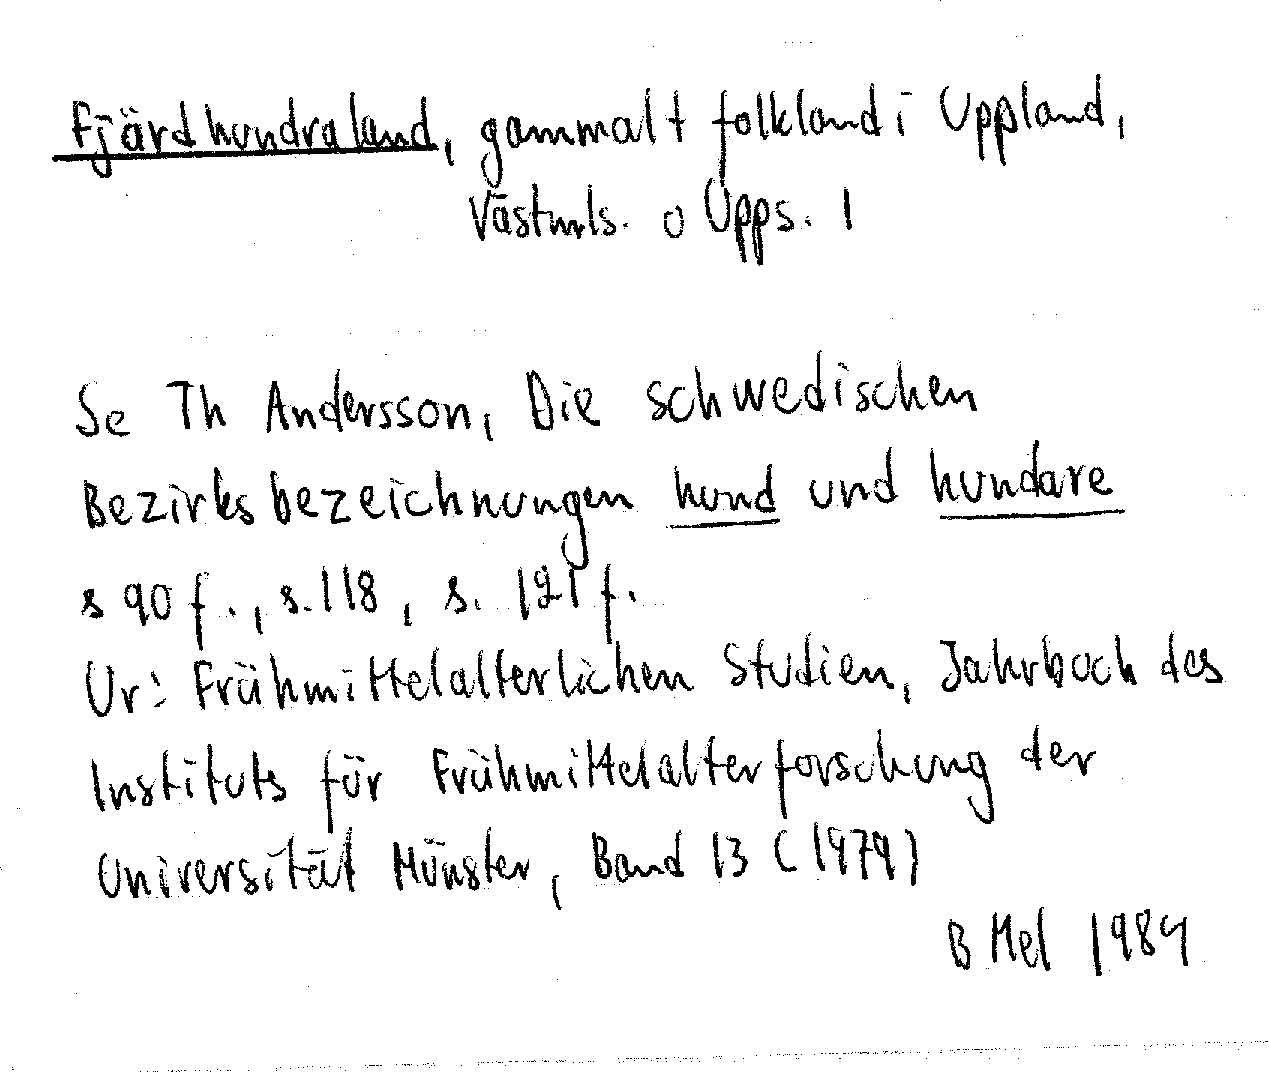 Fjärdhundraland, gammalt folkland i Uppland,
Västmls. o Upps. l
Se Th Andersson, Die schwedischen
Bezirksbezeichnungen hund und hundare
s 90 f., s. 118, s. 121 f.
Ur: Frühmittelalterlichen Studien, Jahrbuch des
Instituts für Frühmittelalterforschung der
Universität Münster, Band 13 (1979)
B Mel 1984